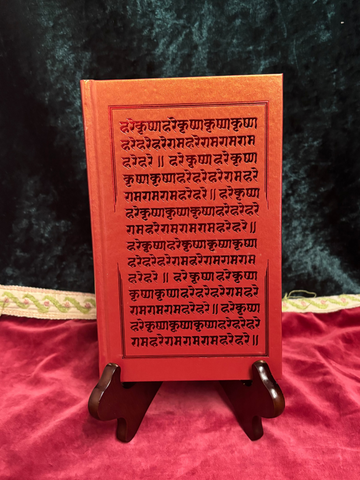 हरेकृष्णहरेकृष्णकृष्णकृष्ण
हरेहरेहरेरामहरेरामरामराम
हरेहरे॥ हरेकृष्णहरेकृष्ण
कृष्णकृष्णहरेहरेहरेरामहरे
रामरामरामहरेहरे॥ हरेकृष्ण
हरेकृष्णकृष्णकृष्णहरेहरेहरे
रामहरेरामरामरामहरेहरे॥
हरेकृष्णहरेकृष्णकृष्णकृष्ण
हरेहरेहरेरामहरेरामरामराम
हरेहरे॥ हरेकृष्णहरेकृष्ण
कृष्णकृष्णहरेहरेहरेरामहरे
रामरामरामहरेहरे॥ हरेकृष्ण
हरेकृष्णकृष्णकृष्णहरेहरेहरे
रामहरेरामरामरामहरेहरे॥